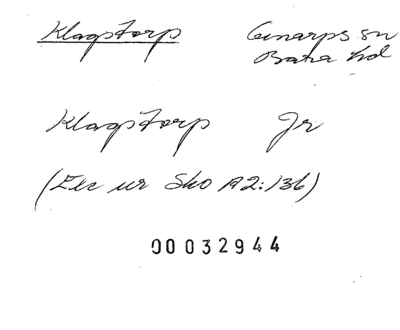 Klagstorp Genarps sn
Bara hd
Klagstorp Jr
(Exc ur Sko A2:136)
00032944